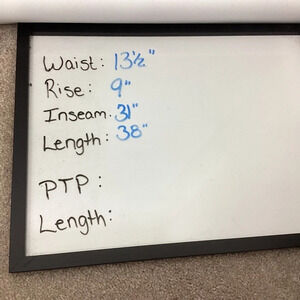 Waist: 13½"
Rise: 9"
Inseam. 31"
Length: 38"
PTP:
Length: